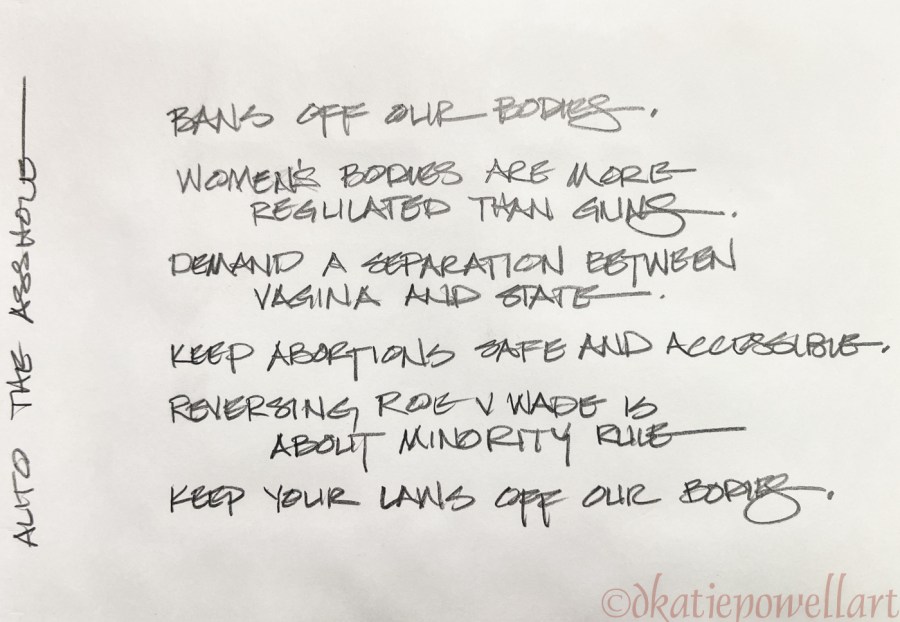 BANS OFF OUR BODIES.
WOMEN'S BODIES ARE MORE
REGULATED THAN GUNS.
DEMAND A SEPARATION BETWEEN
VAGINA AND STATE.
KEEP ABORTIONS SAFE AND ACCESSIBLE.
REVERSING ROE V WADE IS
ABOUT MINORITY RULE
KEEP YOUR LAWS OFF OUR BODIES.
ALITO THE ASSHOLE
©dkatiepowellart